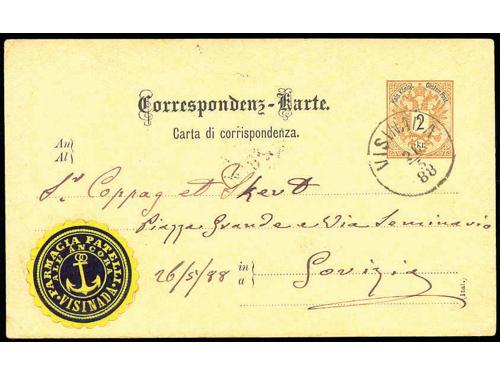 Correspondenz-Karte.
Carta di corrispondenza.
2
kr.
VISINADA
88
An
Al
Piazza Grande e Via Seminario
26/5/88
in
a
Gorizia
(Ital.)
FARMACIA PATELLI
ALL' ANCORA
VISINADA